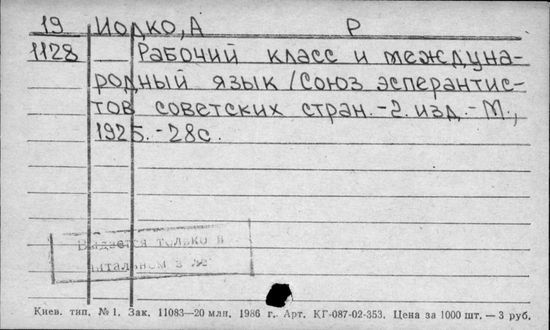 19 Иодко, А Р
1128 Рабочий класс и междуна-
родный язык /Союз эсперантис-
тов советских стран.-2.изд.-М.,
1925.-28с.
Выдается только в
читальном
Киев. тип. № 1. Зак. 11083—20 млн. 1986 г. Арт. КГ-087-02-353. Цена за 1000 шт. — 3 руб.